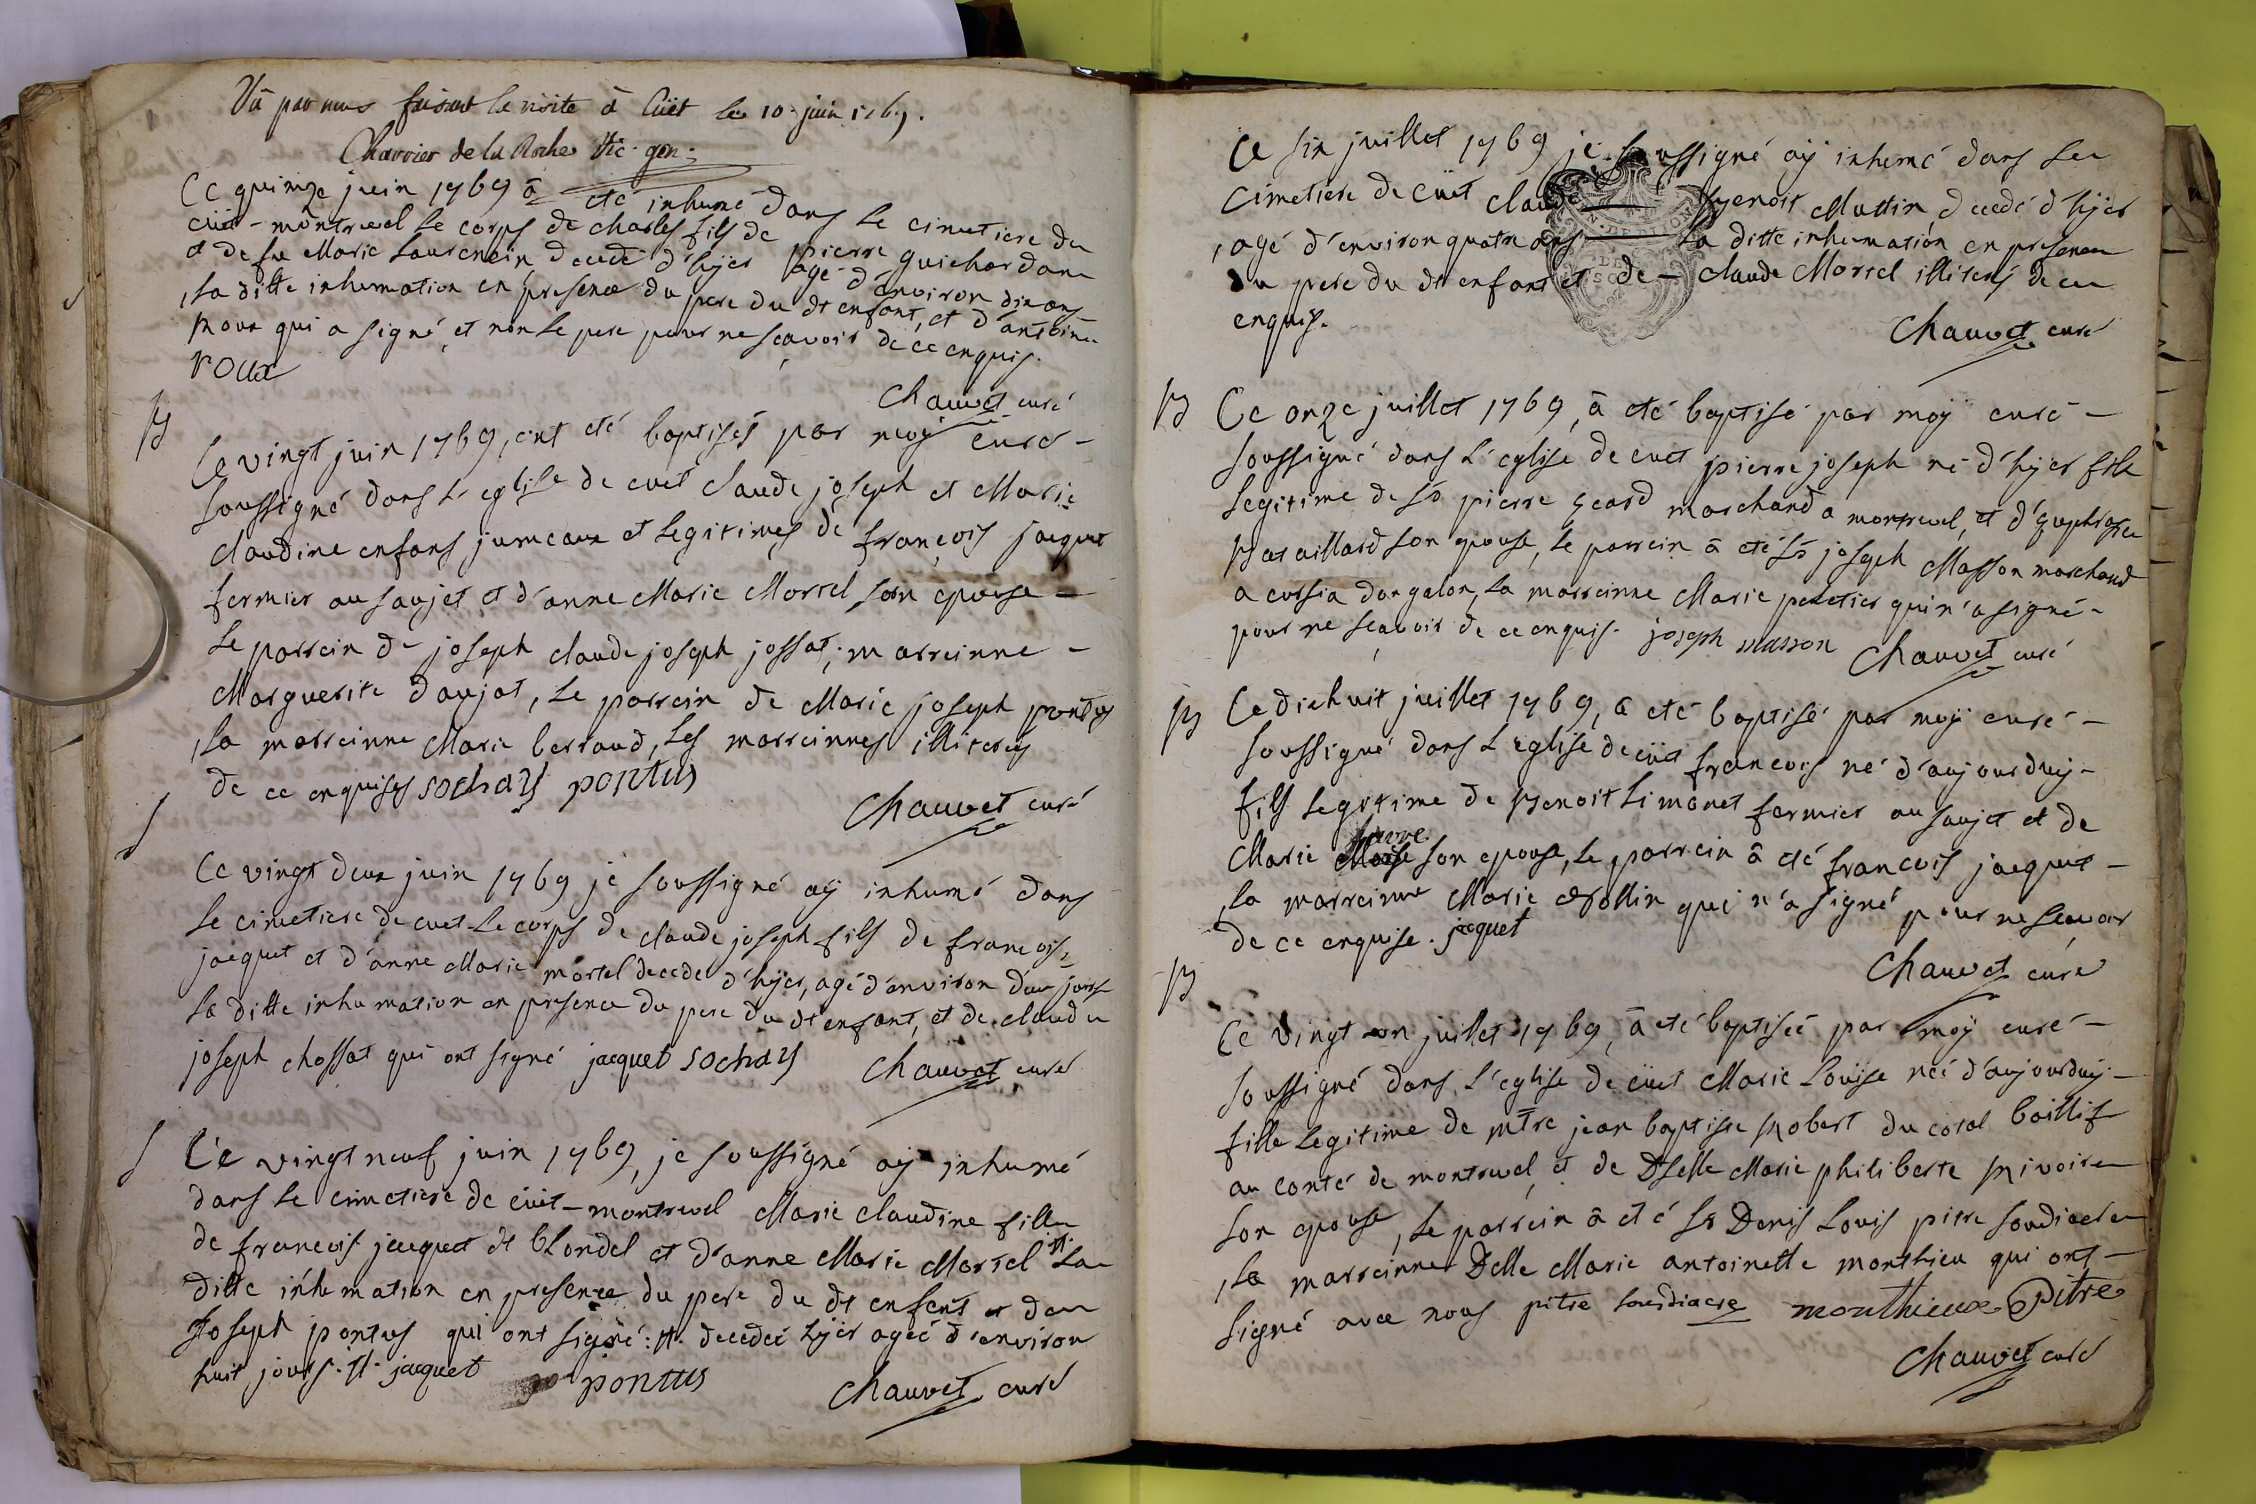 Vû par nous faisant la visite â Cüet le 10 juin 1769.
Charrier de la Roche Vic. gen.
Ce quinze juin 1769 â eté inhumé dans le cimetiere de
cüet-montrevel le corps de charles fils de pierre guichardan
et de fue Marie Laurencin decedé d'hyer agé d'environ dix ans
, la ditte inhumation en presence du pere du dt enfant, et d'antoine
roux qui a signé, et non le pere pour ne sçavoir de ce enquis.
roux
Chauvet curé
B
Ce vingt juin 1769, ont eté baptisés par moÿ curé -
soussigné dans l'eglise de cuet claude joseph et Marie
claudine enfans jumeaux et legitimes de françois jacquet
fermier au saujet et d'anne Marie Morrel son epouse -
Le parrein de joseph claude joseph jossat; marreinne -
Marguerite daujat, le parrein de Marie joseph pontus
, la marreinne Marie berraud, les marreinnes illiterés
de ce enquises sochay pontus
Chauvet curé
S
Ce vingt deux juin 1769 je soussigné aÿ inhumé dans
le cimetiere de cuet le corps de claude joseph fils de francois
jacquet et d'anne Marie morrel decedé d'hyer, agé d'environ deux jours
la ditte inhumation en presence du pere du dt enfant, et de claude
joseph chossat qui ont signé jacquet sochay
Chauvet curé
S
Ce vingt neuf juin 1769, je soussigné aÿ inhumé
dans le cimetiere de cüet-montrevel Marie claudine fille
de francois jacquet dt blondel et d'anne Marie Morrel .#. La
ditte inhumation en presence du pere du dt enfent et de
Joseph pontus qui ont signé .#. decedeé hyer ageé d'environ
huit jours .#. jacquet pontus
Chauvet curé
Ce six juillet 1769 je soussigné aÿ inhumé dans le
cimetiere de cuet claude benoit Muttin decedé d'hyer
, agé d'environ quatre ans la ditte inhumation en presence
du pere du dt enfant et de - claude Morrel illiterés de ce
enquis.
Chauvet curé
B
Ce onze juillet 1769, â eté baptisé par moÿ curé -
soussigné dans l'eglise de cuet pierre joseph né d'hyer fils
legitime de sr pierre geard marchand a montrevel, et d'euphrasie
bataillard son epouse, le parrein â eté sr joseph Masson marchand
a cursia dongalon, la marreinne Marie peletier qui n'a signé -
pour ne sçavoir de ce enquis. joseph masson
Chauvet curé
B
Ce dixhuit juillet 1769, â eté baptisé par moÿ curé -
soussigné dans l'eglise de cüet francois né d'aujourduy -
fils legitime de benoit Limonet fermier au saujet et de
Marie son epouse, le parrein â eté francois jacquet -
, la marreinne Marie qui n'a signé pour ne sçavoir
de ce enquise. jacquet
Chauvet curé
B
Ce vingt on juillet 1769, â eté baptiseé par moÿ curé -
soussigné dans l'eglise de cüet Marie Louise neé d'aujourduy -
fille legitime de mtre jean baptiste Robert du coral baillif
au conté de montrevel, et de Dselle Marie philiberte Rivoire
son epouse, le parrein â eté sr Denis Louis pitre soudiacre
, la marreinne Delle Marie antoinette monthieu qui ont -
signé avec nous pitre sousdiacre monthieux Pitre
Chauvet curé